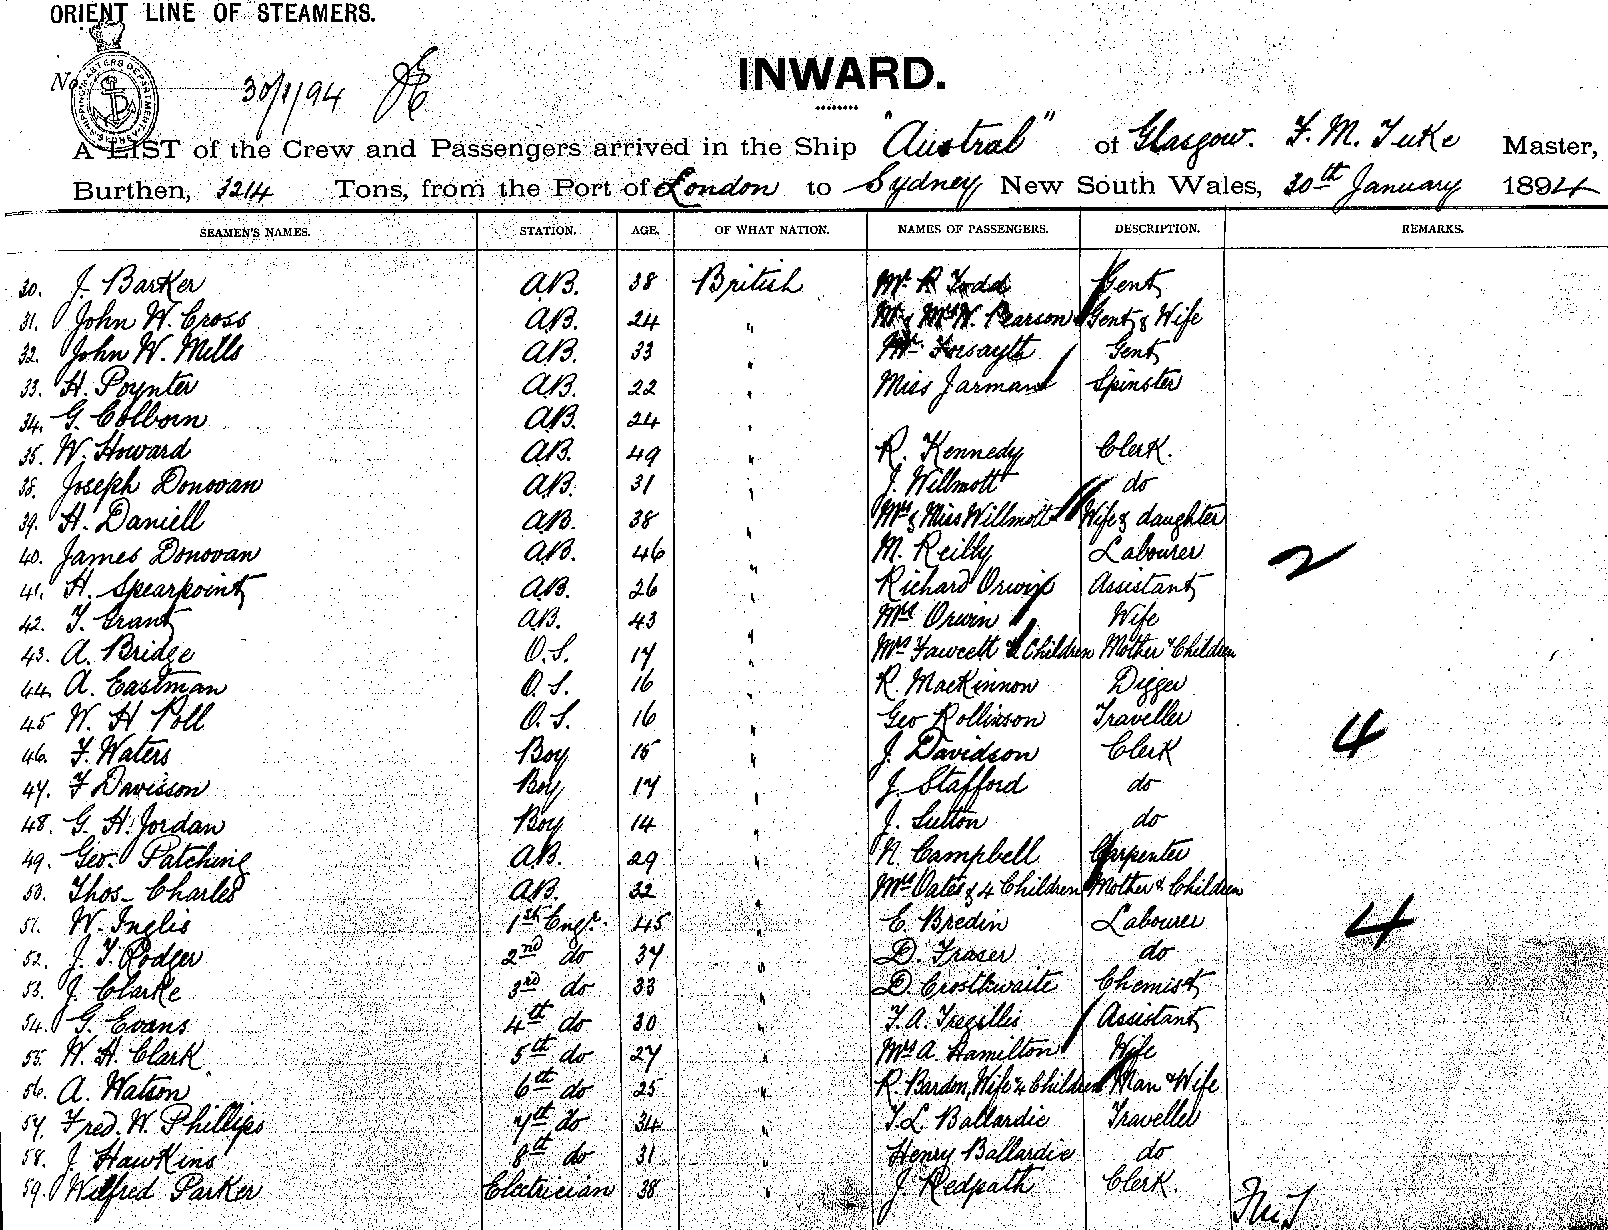 ORIENT LINE OF STEAMERS.
No
30/1/94
INWARD.
A LIST of the Crew and Passengers arrived in the Ship "Austral" of Glasgow. F. M. Tuke Master,
Burthen, 3214 Tons, from the Port of London to Sydney New South Wales, 30th January 1894
SEAMEN'S NAMES. STATION. AGE. OF WHAT NATION. NAMES OF PASSENGERS. DESCRIPTION. REMARKS.
30. J. Barker A.B. 38 British Mr R Todd Gent
31. John W. Cross A.B. 24 " Mr & Mrs W. Pearson Gent & Wife
32. John W. Mills A.B. 33 " Mr Forsayth Gent
33. H. Poynter A.B. 22 " Miss Jarman Spinster
34. G. Colborn A.B. 24 "
35. W. Howard A.B. 49 " R. Kennedy Clerk.
38. Joseph Donovan A.B. 31 " J. Willmott do
39. H. Daniell A.B. 38 " Mrs & Miss Willmott Wife & daughter
40. James Donovan A.B. 46 " M. Reilly Labourer 2
41. H. Spearpoint A.B. 26 " Richard Orwin Assistant
42. T. Grant A.B. 43 " Mrs Orwin Wife
43. A. Bridge O.S. 17 " Mrs Fawcett & Children Mother & Children
44. A. Eastman O.S. 16 " R. MacKinnon Digger
45 W. H Poll O.S. 16 " Geo Rollinson Traveller 4
46. F. Waters Boy 15 " J. Davidson Clerk
47. F Davisson Boy 17 " J. Stafford do
48. G. H. Jordan Boy 14 " J. Sutton do
49. Geo. Patching A.B. 29 " N. Campbell Carpenter
50. Thos. Charles A.B. 32 " Mrs Oates & 4 Children Mother & Children
51. W. Inglis 1st Engr. 45 " E. Bredin Labourer 4
52. J. T. Rodger 2nd do 37 " D. Fraser do
53. J. Clarke 3rd do 33 " D Crosthwaite Chemist
54. G. Evans 4th do 30 " T. A. Tregillis Assistant
55. W. H. Clark 5th do 27 " Mrs A. Hamilton Wife
56. A. Watson 6th do 25 " R. Bardon, Wife & Children Man & Wife
57. Fred. W. Phillips 7th do 34 " T. L. Ballardie Traveller
58. J. Hawkins 8th do 31 " Henry Ballardie do
59. Wilfred Parker Electrician 38 " J. Redpath Clerk.